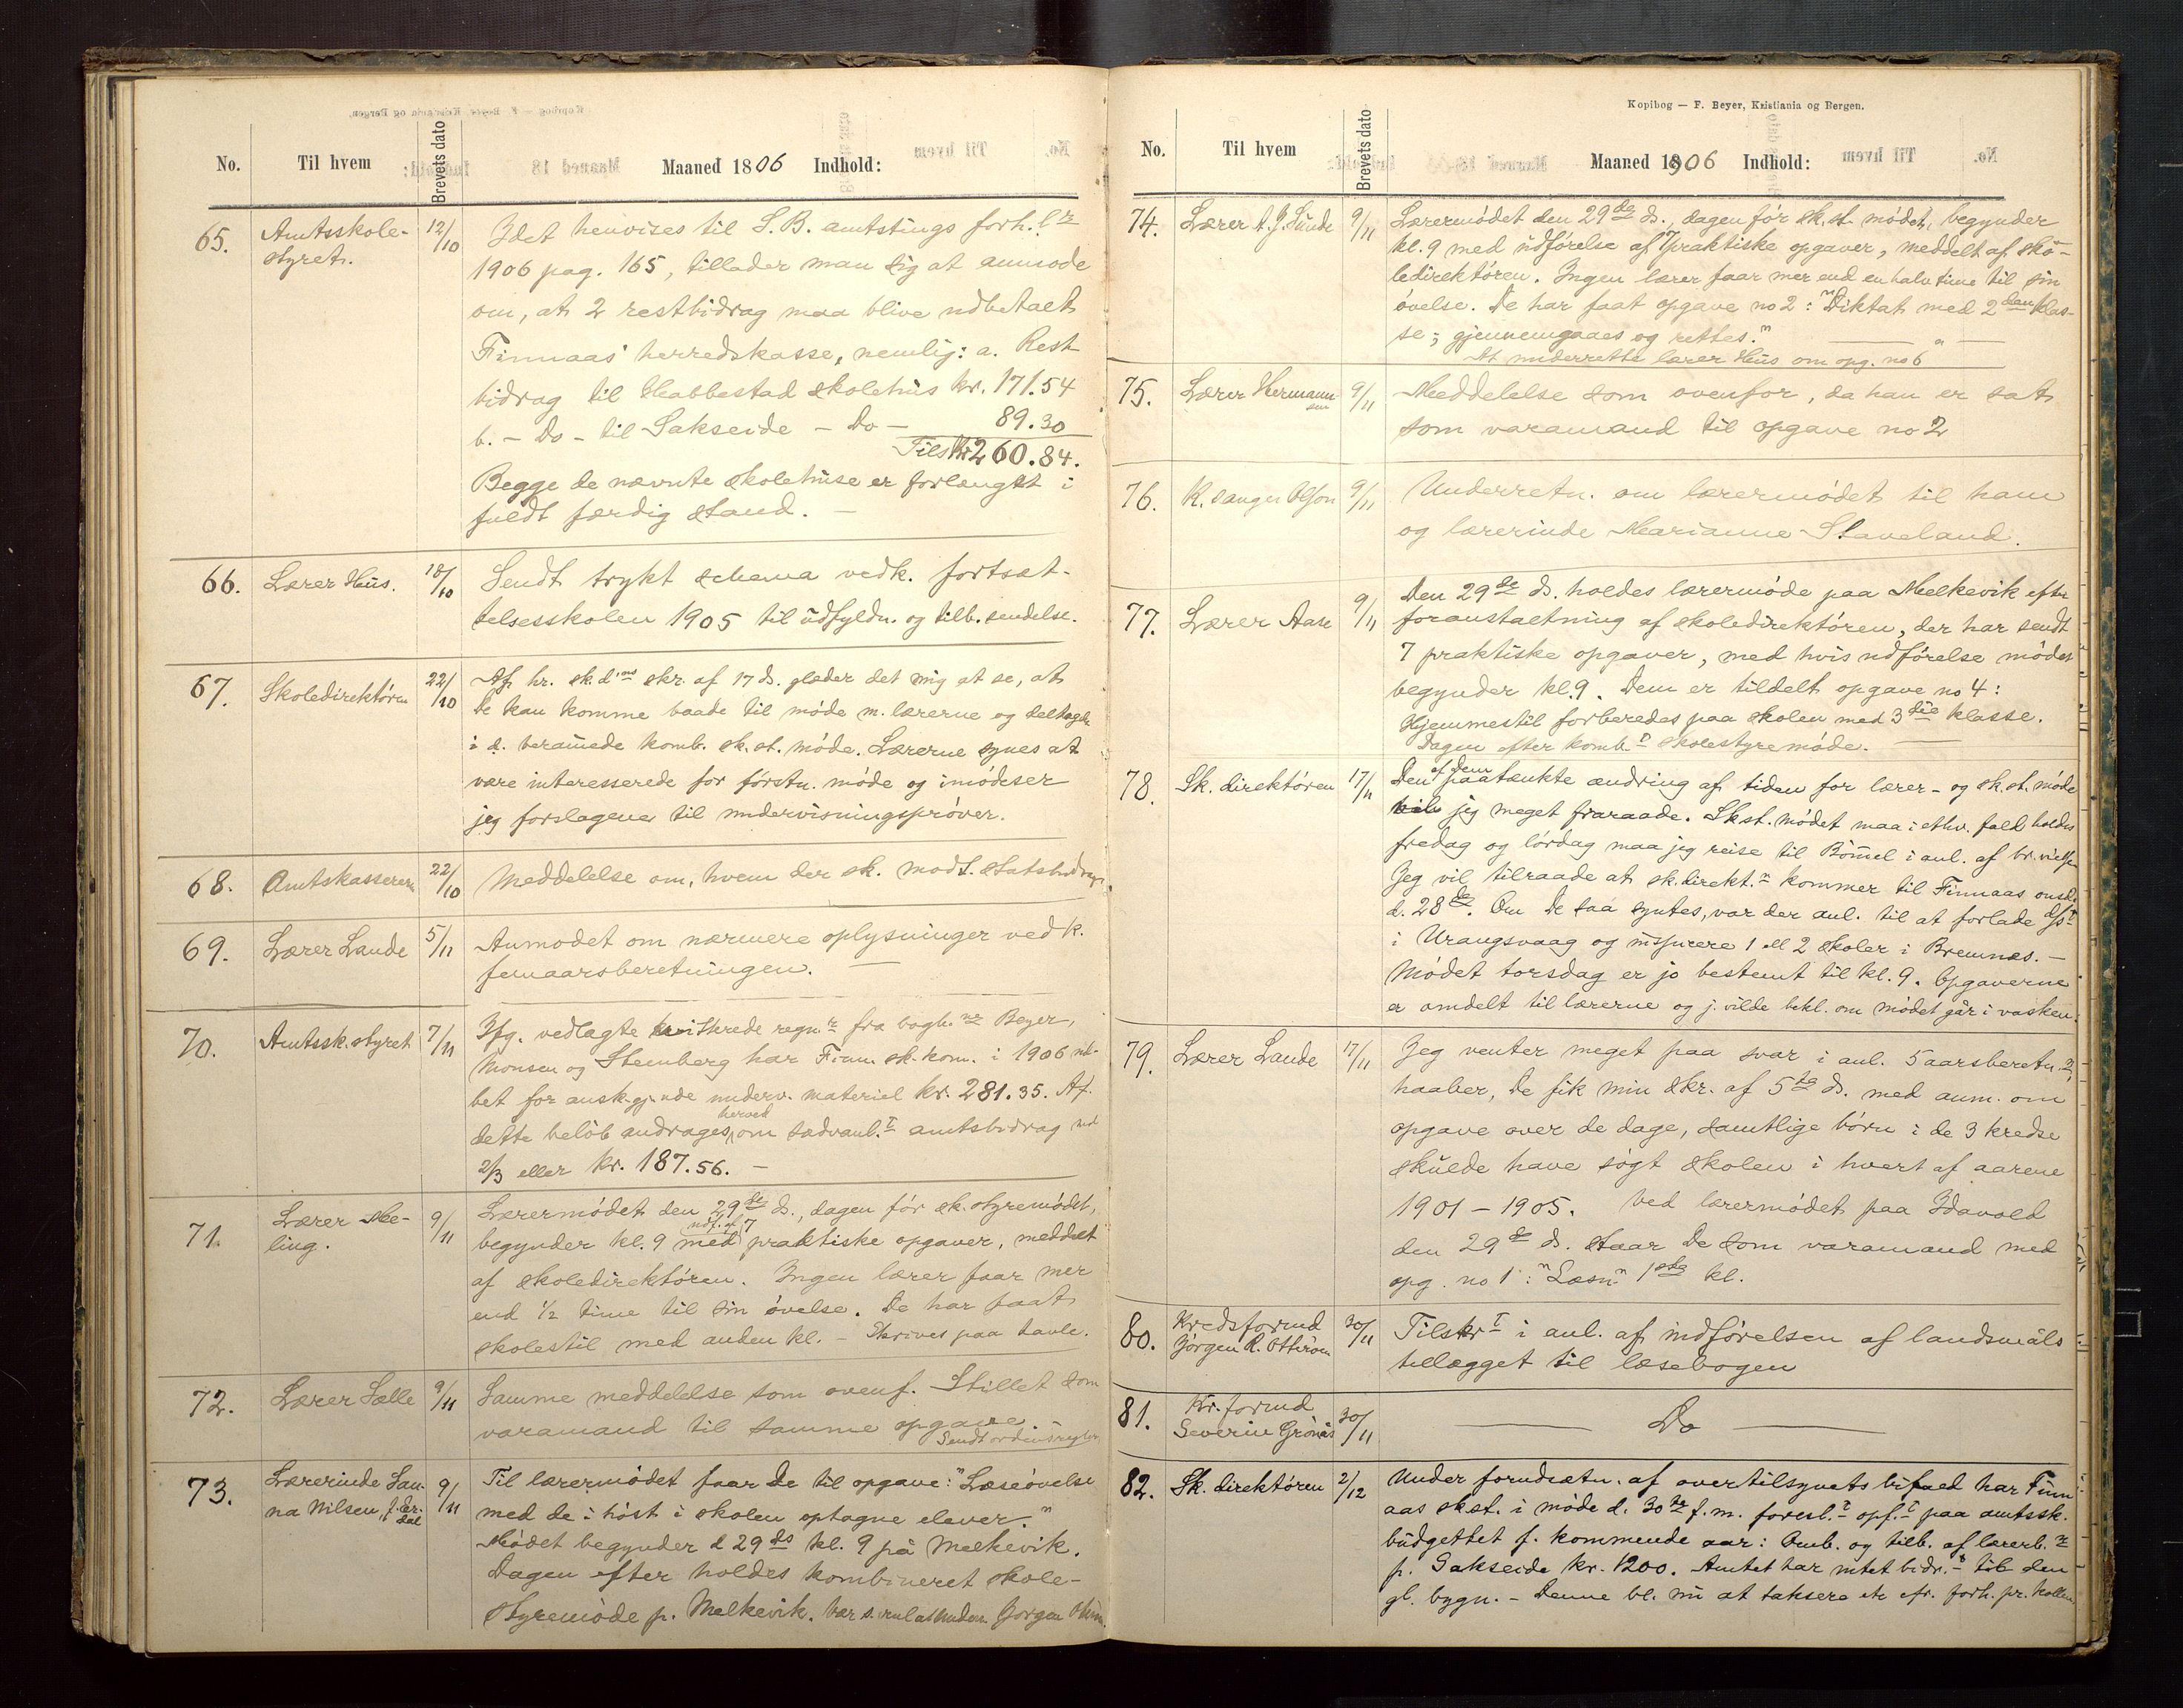 No. Til hvem Brevets dato Maaned 1806 Indhold:
65. Amtsskole- 12/10 Idet henvises til S. B. amtstings forh. f. r
styret. 1906 pag. 165, tillader man sig at anmode
om, at 2 restbidrag maa blive udbetalt
Finnaas herredskasse, nemlig: a. Rest
bidrag til Habbestad skolehus kr. 171.54
b. - Do - til Sakseide - Do - 89.30
Tils kr 260.84.
Begge de nævnte skolehuse er forlængst i
fuldt færdig stand. -
66. Lærer Hus. 18/10 Sendt trykt schema vedk. fortsæt-
telsesskolen 1905 til udfyldn. og tilb. sendelse.
67. Skoledirektøren 22/10 Af hr. sk. d. skr. af 17 ds. glæder det mig at se, at
De kan komme baade til møde m. lærerne og deltage
i d. beramede komb. sk. st. møde. Lærerne synes at
være interesserede for førstn. møde og imødeser
jeg forslagene til undervisningsprøver.
68. Amtskasseren 22/10 Meddelelse om, hvem der sk. modt. statsbidrag.
69. Lærer Lande 5/11 Anmodet om nærmere oplysninger vedk.
femaarsberetningen. -
70. Amtssk. styret 7/11 Ifg. vedlagte kvitterede regn. r fra bogh. ne Beyer,
Monsen og Stenberg har Finn. sk. kom. i 1906
bet for ansk. gj. nde underv. materiel kr. 281.35. Af
dette beløb andrages herved om sædvanl. t amtsbidrag med
2/3 eller kr. 187.56. -
71. Lærer Me- 9/11 Lærermødet den 29de ds., dagen før sk. styremødet,
ling. begynder kl. 9 med udf. af 7 praktiske opgaver, meddelt
af skoledirektøren. Ingen lærer faar mer
end 1/2 time til sin øvelse. De har faat
skolestil med anden kl. - Skrives paa tavle.
72. Lærer Sælle 9/11 Samme meddelelse som ovenf. Stillet som
varamand til samme opgave. -
Sendt ordensregler
73. Lærerinde San- 9/11 Til lærermødet faar De til opgave: "Læseøvelse
na Nilsen, med de i høst i skolen optagne elever."
Mødet begynder d 29 ds kl. 9 på Melkevik.
Dagen efter holdes kombineret skole-
styremøde p. Melkevik. Vær s. Jørgen
Kopibog — F. Beyer, Kristiania og Bergen.
No. Til hvem Brevets dato Maaned 1906 Indhold:
74. Lærer A. J. Sunde 9/11 Lærermødet den 29de ds., dagen før sk. st. mødet, begynder
kl. 9 med udførelse af 7 praktiske opgaver, meddelt af sko-
ledirektøren. Ingen lærer faar mer end en halv time til sin
øvelse. De har faat opgave no 2: "Diktat med 2den klas-
se; gjennemgaaes og rettes."
At underrette lærer Hus om opg. no 6
75. Lærer Hermann- 9/11 Meddelelse som ovenfor, da han er sat
sen som varamand til opgave no 2
76. K. sanger Olson 9/11 Underretn. om lærermødet til ham
og lærerinde Marianne Staveland.
77. Lærer Aase 9/11 Den 29de ds. holdes lærermøde paa Melkevik efter
foranstaltning af skoledirektøren, der har sendt
7 praktiske opgaver, med hvis udførelse mødet
begynder kl. 9. Dem er tildelt opgave no 4:
Hjemmestil forberedes paa skolen med 3die klasse.
Dagen efter komb. t skolestyremøde.
78. Sk. direktøren 17/11 Den af Dem paatænkte ændring af tiden for lærer- og sk. st. møde
vil jeg meget fraraade. Sk st. mødet maa i ethv. fald holdes
fredag og lørdag maa jeg reise til Bømmel i anl. af br. vielse.
Jeg vil tilraade at sk. direkt. n kommer til Finnaas onsd.
d. 28de. Om De saa syntes, var der anl. til at forlade d/s
i Urangsvaag og inspicere 1 ell 2 skoler i Bremnes. -
Mødet torsdag er jo bestemt til kl. 9. Opgaverne
er omdelt til lærerne og j. vilde bekl. om mødet går i vasken.
79. Lærer Lande 17/11 Jeg venter meget paa svar i anl. 5aarsberetn.
haaber, De fik min skr. af 5te ds. med anm. om
opgave over de dage, samtlige børn i de 3 kredse
skulde have søgt skolen i hvert af aarene
1901 - 1905. Ved lærermødet paa Idavold
den 29de ds. staar De som varamand med
opg. no 1: "Læsn" 1ste kl.
80. Kredsformd 30/11 Tilskr t i anl. af indførelsen af landsmåls
Jørgen R. tillægget til læsebogen
81. Kr. formd 30/11 Do
Severin Grönås
82. Sk. direktøren 2/12 Under forudsætn. af overtilsynets bifald har Finn
aas sk. st. i møde d. 30te f. m. foresl. t opf. t paa amtssk.
budgettet f. kommende aar: Omb. og tilb. af lærerb.
p. Sakseide kr. 1200. Amtet har intet bidr. t til den
gl. bygn. - Denne bl. nu at taksere